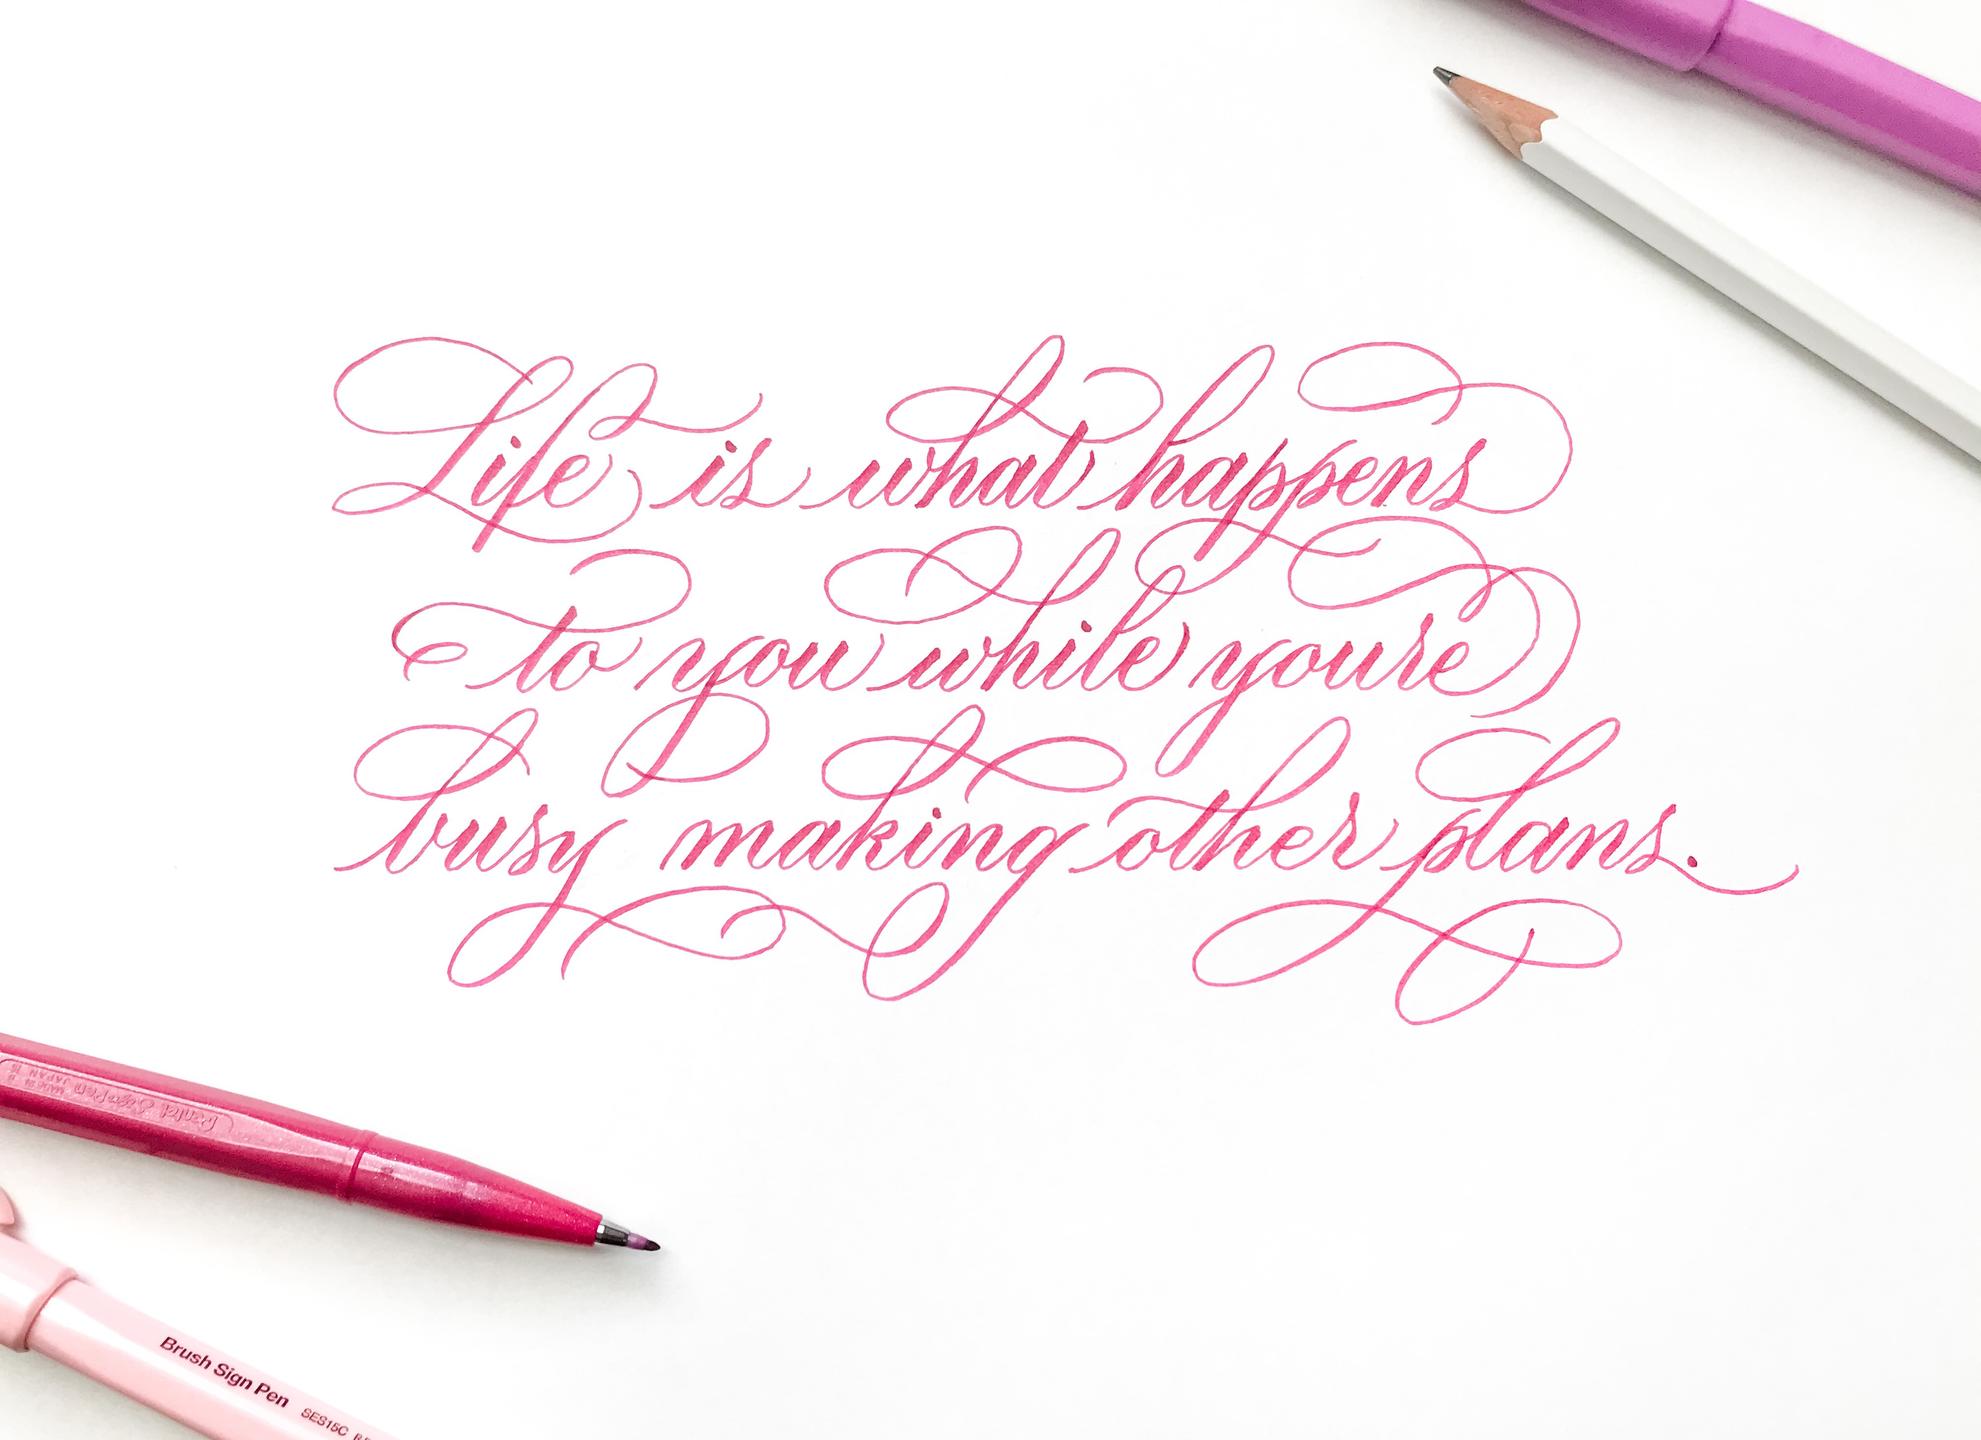 Life is what happens
to you while youre
busy making other plans.
Pentel Sign Pen
MADE IN JAPAN
Brush Sign Pen SES15C